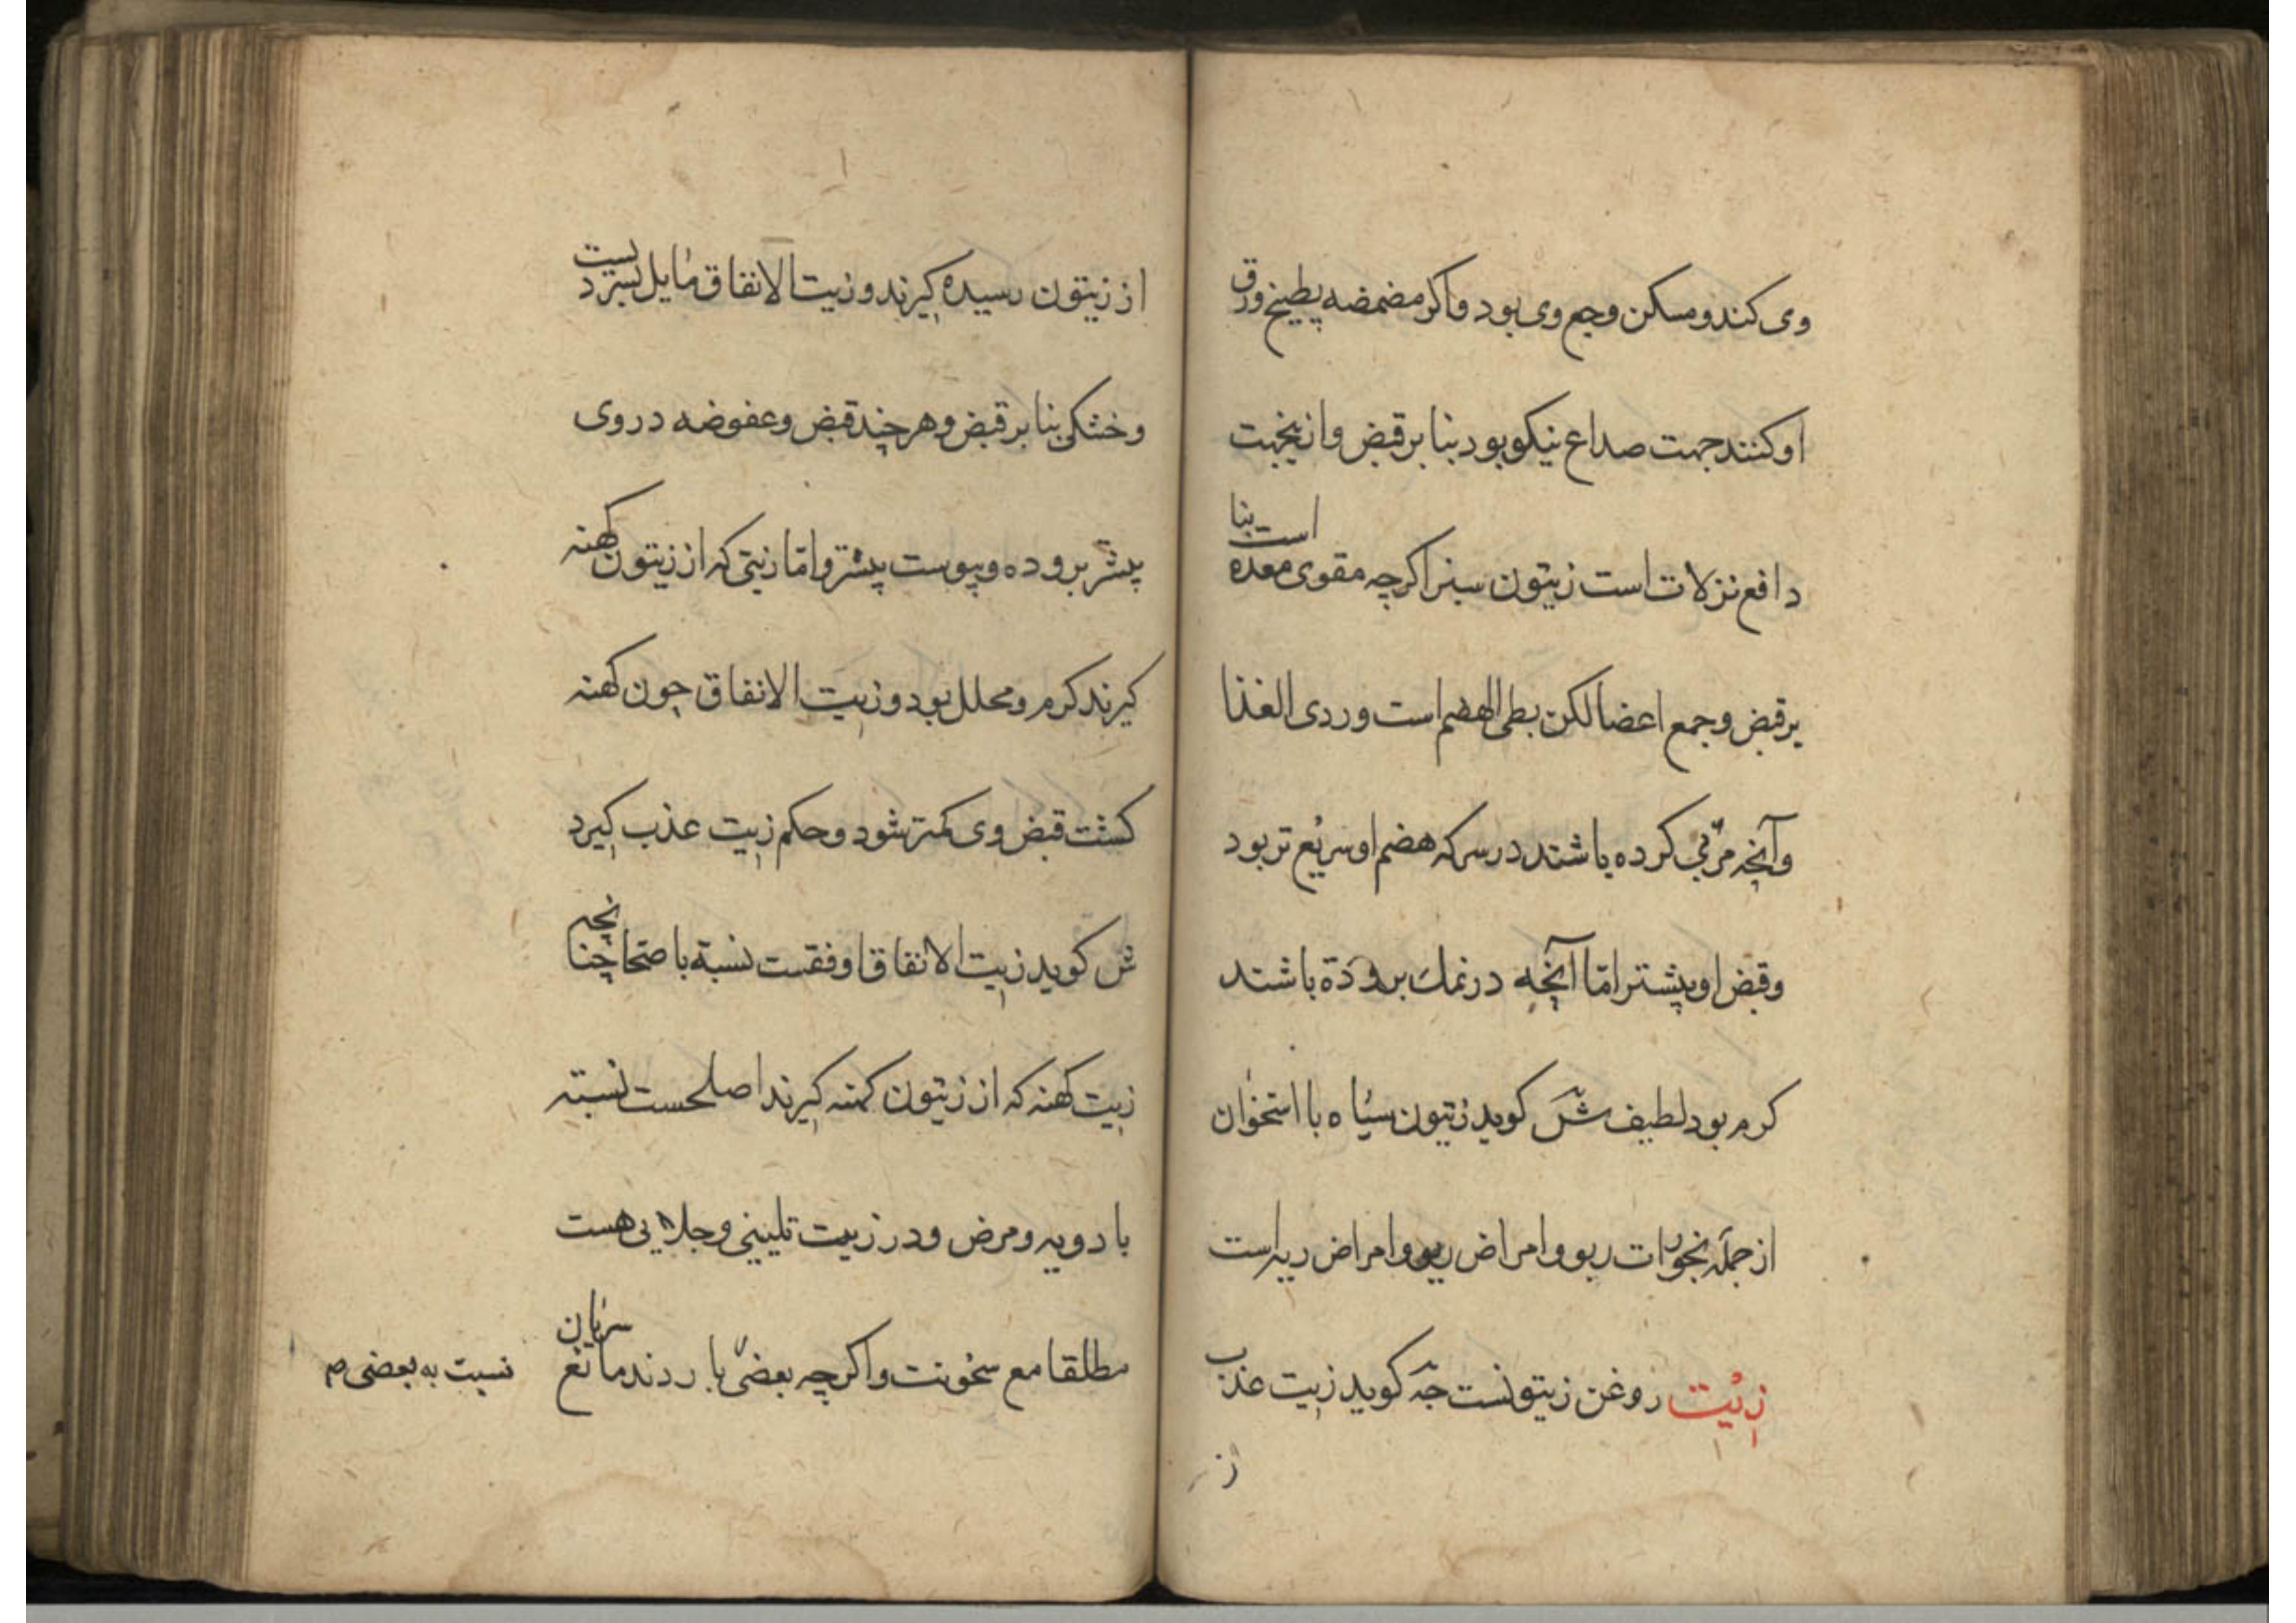 وی کند و مسکن وجع وی بود و اکر مضمضه بطبیخ ورق
او کنند جهت صداع نیکو بود بنا بر قبض و از نجهت
دافع نزلات است زیتون سبز اکرچه مقوی معده است بنا
بر قبض و جمع اعضا لکن بطی الهضم است و ردی الغذا
و آنچه مربی کرده باشند در سرکه هضم او سریع تر بود
و قبض او پیشتر امّا آنچه در نمک پروده باشند
کرم بود لطیف ش کوید زیتون سیاه با استخوان
از جمله بخورات ربو و امراض ربو و امراض ریه است
زیت روغن زیتونست جه کوید زیت عذب
از
از زیتون رسیده کیرند و زیت الانفاق مایل بسردیست
و خشکی بنا بر قبض و هر چند قبض و عفوضه در وی
پیشتر بروده و یبوست پیشتر و امّا زیتی که از زیتون کهنه
کیرند کرم و محلل بود و زیت الانفاق چون کهنه
کشت قبض وی کمتر شود و حکم زیت عذب کیرد
ش کوید زیت الانفاق اوفقست نسبة باصحا چنانچه
زیت کهنه که از زیتون کهنه کیرند اصلحست نسبته
بادویه و مرض و در زیت تلیینی و جلایی هست
مطلقا مع سخونت و اکرچه بعضی باردند مانع سریان
نسبت به بعضی